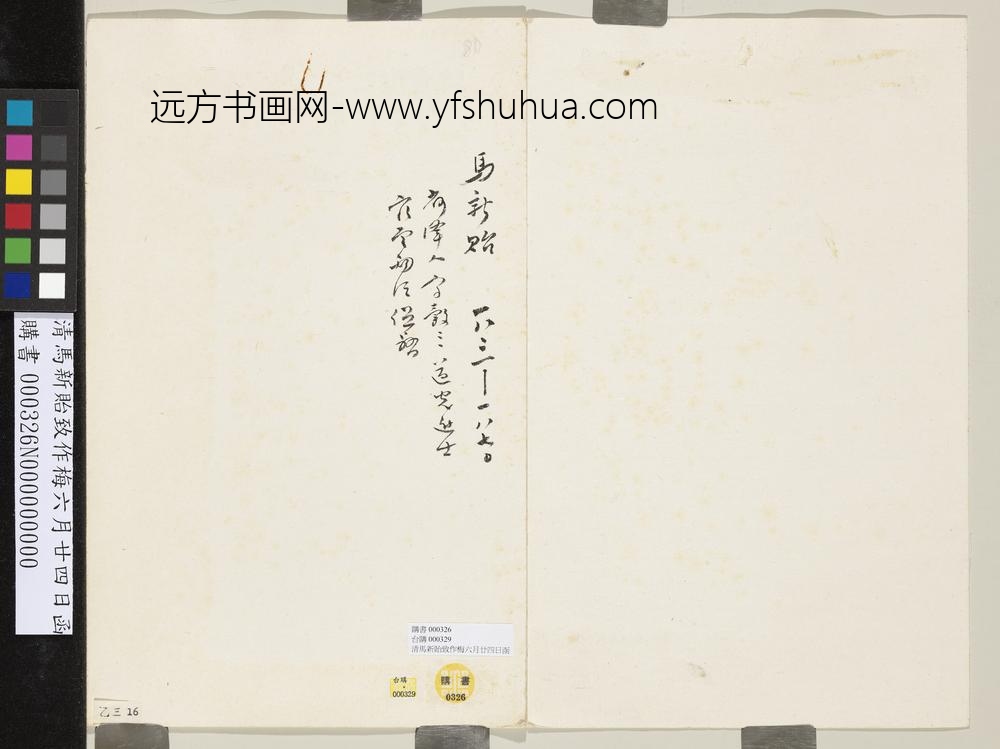 远方书画网-www.yfshuhua.com
馬新貽 一八二一—一八七〇
荷澤人字穀三道光進士
官至兩江總督
清馬新貽致作梅六月廿四日函
購書 000326N000000000
購書 000326
台購 000329
清馬新貽致作梅六月廿四日函
台購
000329
購書
0326
乙三 16